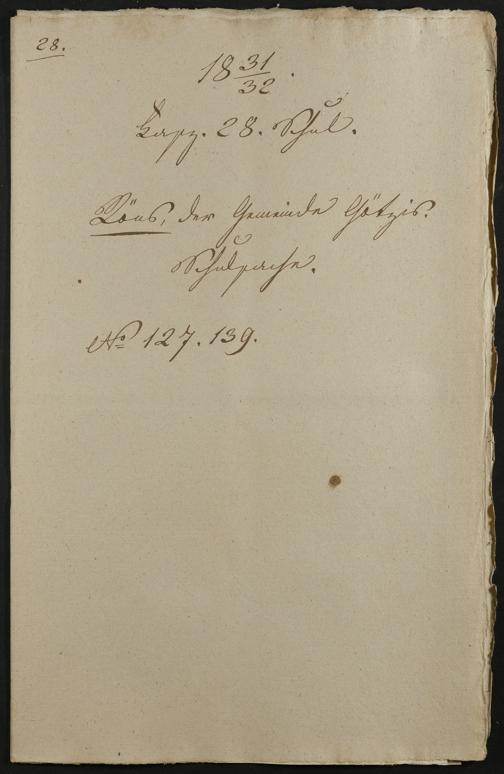 28.
18 31/32.
Kapz. 28. Schul.
Röns, der Gemeinde Götzis.
Schulsache.
No 127. 139.